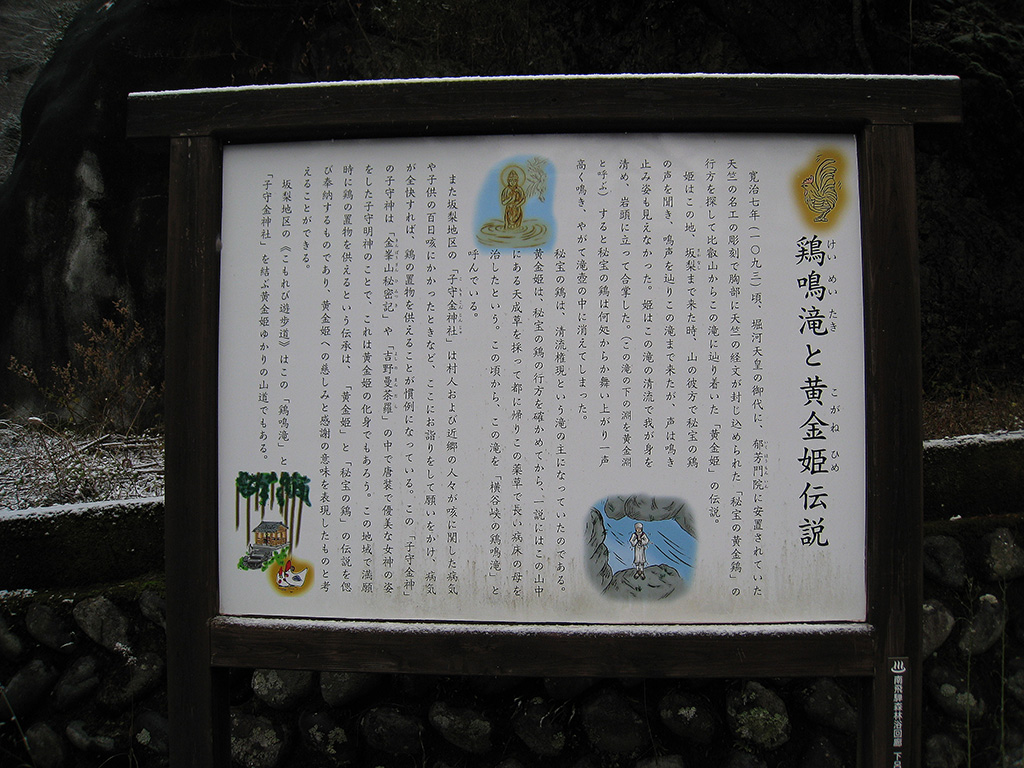 鶏鳴滝と黄金姫伝説
けいめいたき こがねひめ
寛治七年(一〇九三)頃、堀河天皇の御代に、郁芳門院に安置されていた
天竺の名工の彫刻で胸部に天竺の経文が封じ込められた「秘宝の黄金鶏」の
行方を探して比叡山からこの滝に辿り着いた「黄金姫」の伝説。
姫はこの地、坂梨まで来た時、山の彼方で秘宝の鶏
の声を聞き、鳴声を辿りこの滝まで来たが、声は鳴き
止み姿も見えなかった。姫はこの滝の清流で我が身を
清め、岩頭に立って合掌した。(この滝の下の淵を黄金淵
と呼ぶ) すると秘宝の鶏は何処からか舞い上がり一声
高く鳴き、やがて滝壺の中に消えてしまった。
秘宝の鶏は、清流権現という滝の主になっていたのである。
黄金姫は、秘宝の鶏の行方を確かめてから、一説にはこの山中
にある天成草を採って都に帰りこの薬草で長い病床の母を
治したという。この頃から、この滝を「横谷峡の鶏鳴滝」と
呼んでいる。
また坂梨地区の「子守金神社」は村人および近郷の人々が咳に関した病気
や子供の百日咳にかかったときなど、ここにお詣りをして願いをかけ、病気
が全快すれば、鶏の置物を供えることが慣例になっている。この「子守金神」
の子守神は「金峯山秘密記」や「吉野曼荼羅」の中で唐装で優美な女神の姿
をした子守明神のことで、これは黄金姫の化身でもあろう。この地域で満願
時に鶏の置物を供えるという伝承は、「黄金姫」と「秘宝の鶏」の伝説を偲
び奉納するものであり、黄金姫への慈しみと感謝の意味を表現したものと考
えることができる。
坂梨地区の《こもれび遊歩道》はこの「鶏鳴滝」と
「子守金神社」を結ぶ黄金姫ゆかりの山道でもある。
南飛騨森林浴回廊 下呂